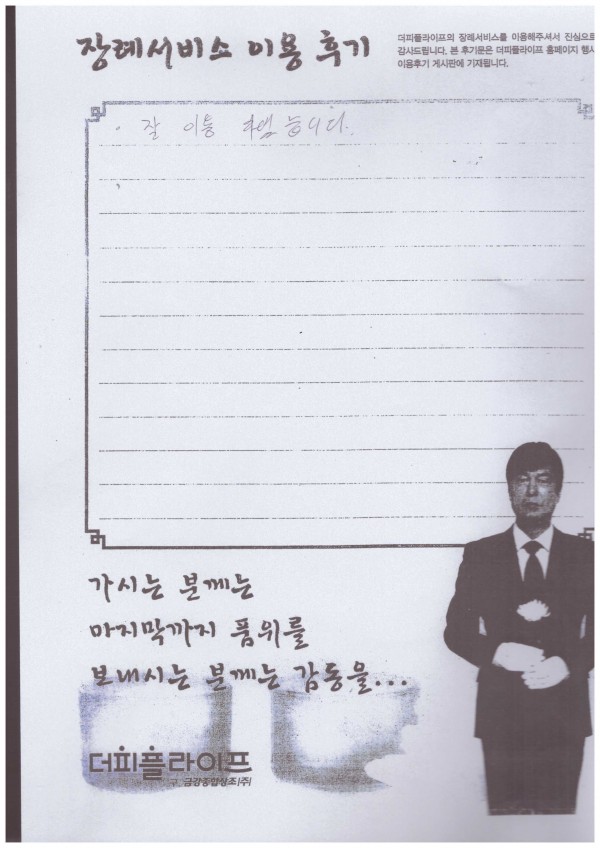 장례서비스 이용 후기
더피플라이프의 장례서비스를 이용해주셔서 진심으로
감사드립니다. 본 후기문은 더피플라이프 홈페이지 행사
이용후기 게시판에 기재됩니다.
잘 이용 하였습니다.
가시는 분께는
마지막까지 품위를
보내시는 분께는 감동을...
더피플라이프
구. 금강종합상조(주)